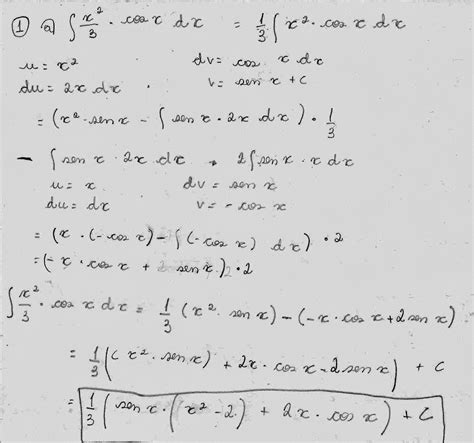 ① a) ∫ x²/3 · cos x dx = 1/3 ∫ x² · cos x dx
u = x² dv = cos x dx
du = 2x dx v = sen x + C
= (x² · sen x − ∫ sen x · 2x dx) · 1/3
− ∫ sen x · 2x dx → 2∫ sen x · x dx
u = x dv = sen x
du = dx v = − cos x
= (x · (− cos x) − ∫ (− cos x) dx) · 2
= (− x · cos x + sen x) · 2
∫ x²/3 · cos x dx = 1/3 (x² · sen x) − (−x · cos x + 2 sen x)
= 1/3 ((x² · sen x) + 2x · cos x − 2 sen x) + C
= 1/3 (sen x · (x² − 2) + 2x · cos x) + C